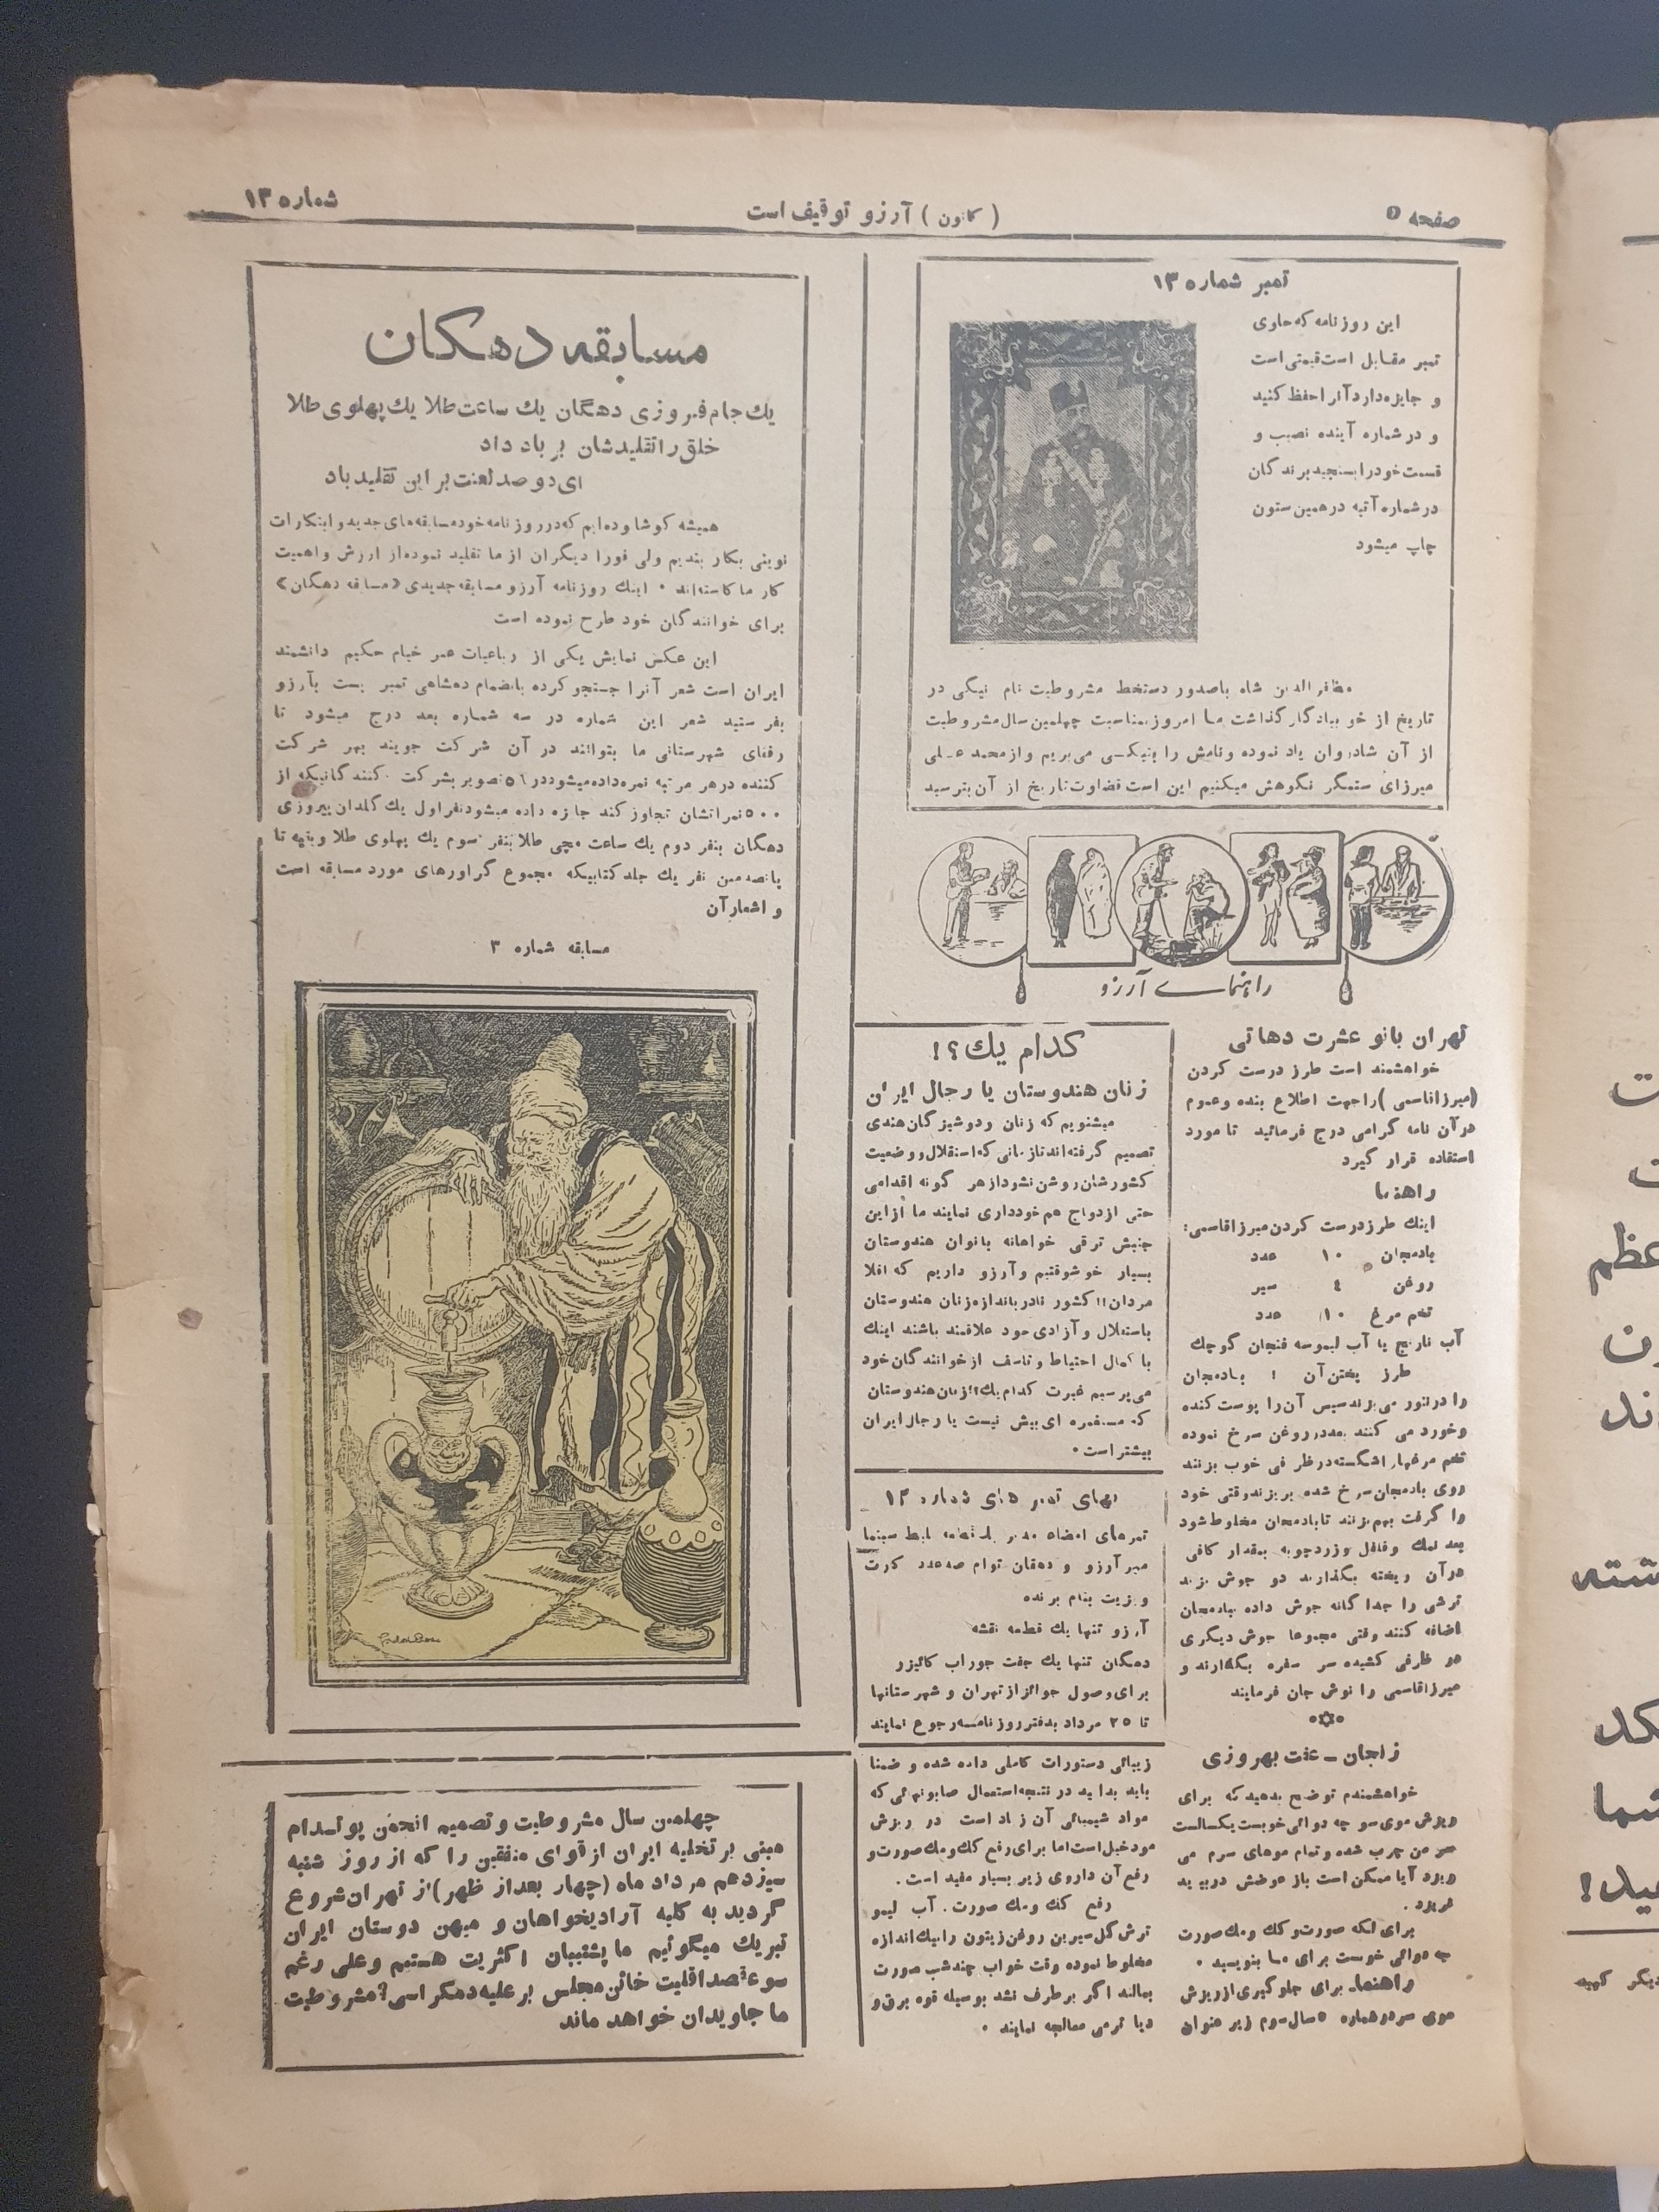 صفحه ۵
(کانون) آرزو توقیف است
شماره ۱۳
تمبر شماره ۱۳
این روزنامه که حاوی
تمبر مقابل است قیمتی است
و جایزه دارد آنرا حفظ کنید
و در شماره آینده نصیب و
قسمت خود را بسنجید برندگان
در شماره آتیه در همین ستون
چاپ میشود
مظفرالدین شاه باصدور دستخط مشروطیت نام نیکی در
تاریخ از خو بیادگار گذاشت ما امروز بمناسبت چهلمین سال مشروطیت
از آن شادروان یاد نموده و نامش را بنیکی می بریم و از محمد علی
میرزای ستمگر نکوهش میکنیم این است قضاوت تاریخ از آن بترسید
راهنمای آرزو
تهران بانو عشرت دهاتی
خواهشمند است طرز درست کردن
(میرزاقاسمی) راجهت اطلاع بنده وعموم
در آن نامه گرامی درج فرمائید تا مورد
استفاده قرار گیرد
راهنما
اینك طرز درست کردن میرزاقاسمی:
بادمجان ۱۰ عدد
روغن ٤ سیر
تخم مرغ ۱۰ عدد
آب نارنج یا آب لیمو سه فنجان کوچك
طرز پختن آن : بادمجان
را در تنور می پزند سپس آن را پوست کنده
وخورد می کنند بعد در روغن سرخ نموده
تخم مرغها را شکسته در ظرفی خوب بزنند
روی بادمجان سرخ شده بریزند وقتی خود
را گرفت بهم بزنند تا بادمجان مخلوط شود
بعد نمك و فلفل و زردچوبه بمقدار کافی
در آن ریخته بگذارند دو جوش بزند
ترشی را جداگانه جوش داده ببادمجان
اضافه کنند وقتی مجموعا جوش دیگری
در ظرفی کشیده سر سفره بگذارند و
میرزاقاسمی را نوش جان فرمایند
زنجان ـ عفت بهروزی
خواهشمندم توضیح بدهید که برای
ریزش موی سر چه دوائی خوبست یکسالست
سر من چرب شده و تمام موهای سرم می
ریزد آیا ممکن است باز عوضش دربیاید
نریزد.
برای لکه صورت و كك و مك صورت
چه دوائی خوبست برای ما بنویسید •
راهنما. برای جلوگیری از ریزش
موی سر در شماره ۵ سال سوم زیر عنوان
کدام یك؟!
زنان هندوستان یا رجال ایران
میشنویم که زنان و دوشیزگان هندی
تصمیم گرفته اند تا زمانی که استقلال و وضعیت
کشورشان روشن نشود از هر گونه اقدامی
حتی ازدواج هم خودداری نمایند ما از این
جنبش ترقی خواهانه بانوان هندوستان
بسیار خوشوقتیم و آرزو داریم که اقلا
مردان!! کشور نادر باندازه زنان هندوستان
باستقلال و آزادی خود علاقمند باشند اینك
با کمال احتیاط و تاسف از خوانندگان خود
می پرسیم غیرت کدام یك؟! زنان هندوستان
که مستعمره ای بیش نیست یا رجال ایران
بیشتر است •
بهای تمبر های شماره ۱۲
میر آرزو و دهقان توام صد عدد کارت
ویزیت بنام برنده
آرزو تنها یك قطعه نقشه
دهگان تنها یك جفت جوراب کایزر
برای وصول جوائز از تهران و شهرستانها
تا ۲۵ مرداد بدفتر روزنامه رجوع نمایند
زیبائی دستورات کاملی داده شده و ضمنا
باید بدانید در نتیجه استعمال صابونهائی که
مواد شیمیائی آن زیاد است در ریزش
مو دخیل است اما برای رفع كك و مك صورت و
رفع آن داروی زیر بسیار مفید است.
رفع كك و مك صورت. آب لیمو
ترش گلیسیرین روغن زیتون را بیك اندازه
مخلوط نموده وقت خواب چند شب صورت
بمالند اگر برطرف نشد بوسیله قوه برق و
دیاترمی معالجه نمایند •
مسابقه دهگان
یك جام فیروزی دهگان یك ساعت طلا یك پهلوی طلا
خلق را تقلیدشان بر باد داد
ای دو صد لعنت بر این تقلید باد
همیشه کوشا بوده ایم که در روزنامه خود مسابقه های جدید و ابتکارات
نوینی بکار بندیم ولی فورا دیگران از ما تقلید نموده از ارزش و اهمیت
کار ما کاسته اند • اینك روزنامه آرزو مسابقه جدیدی «مسابقه دهگان»
برای خوانندگان خود طرح نموده است
این عکس نمایش یکی از رباعیات عمر خیام حکیم دانشمند
ایران است شعر آنرا جستجو کرده بانضمام ده شاهی تمبر پست بآرزو
بفرستید شعر این شماره در سه شماره بعد درج میشود تا
رفقای شهرستانی ما بتوانند در آن شرکت جویند بهر شرکت
کننده در هر مرتبه نمره داده میشود در ٥٦ تصویر بشرکت کنندگانیکه از
۵۰۰ نمراتشان تجاوز کند جایزه داده میشود نفر اول یك گلدان پیروزی
دهگان بنفر دوم یك ساعت مچی طلا بنفر سوم یك پهلوی طلا و بقیه تا
پانصدمین نفر یك جلد کتابیکه مجموع گراورهای مورد مسابقه است
و اشعار آن
مسابقه شماره ۳
چهلمین سال مشروطیت و تصمیم انجمن پوتسدام
مبنی بر تخلیه ایران از قوای متفقین را که از روز شنبه
سیزدهم مرداد ماه (چهار بعد از ظهر) از تهران شروع
گردید به کلیه آزادیخواهان و میهن دوستان ایران
تبریك میگوئیم ما پشتیبان اکثریت هستیم و علی رغم
سوء قصد اقلیت خائن مجلس بر علیه دمکراسی؟ مشروطیت
ما جاویدان خواهد ماند